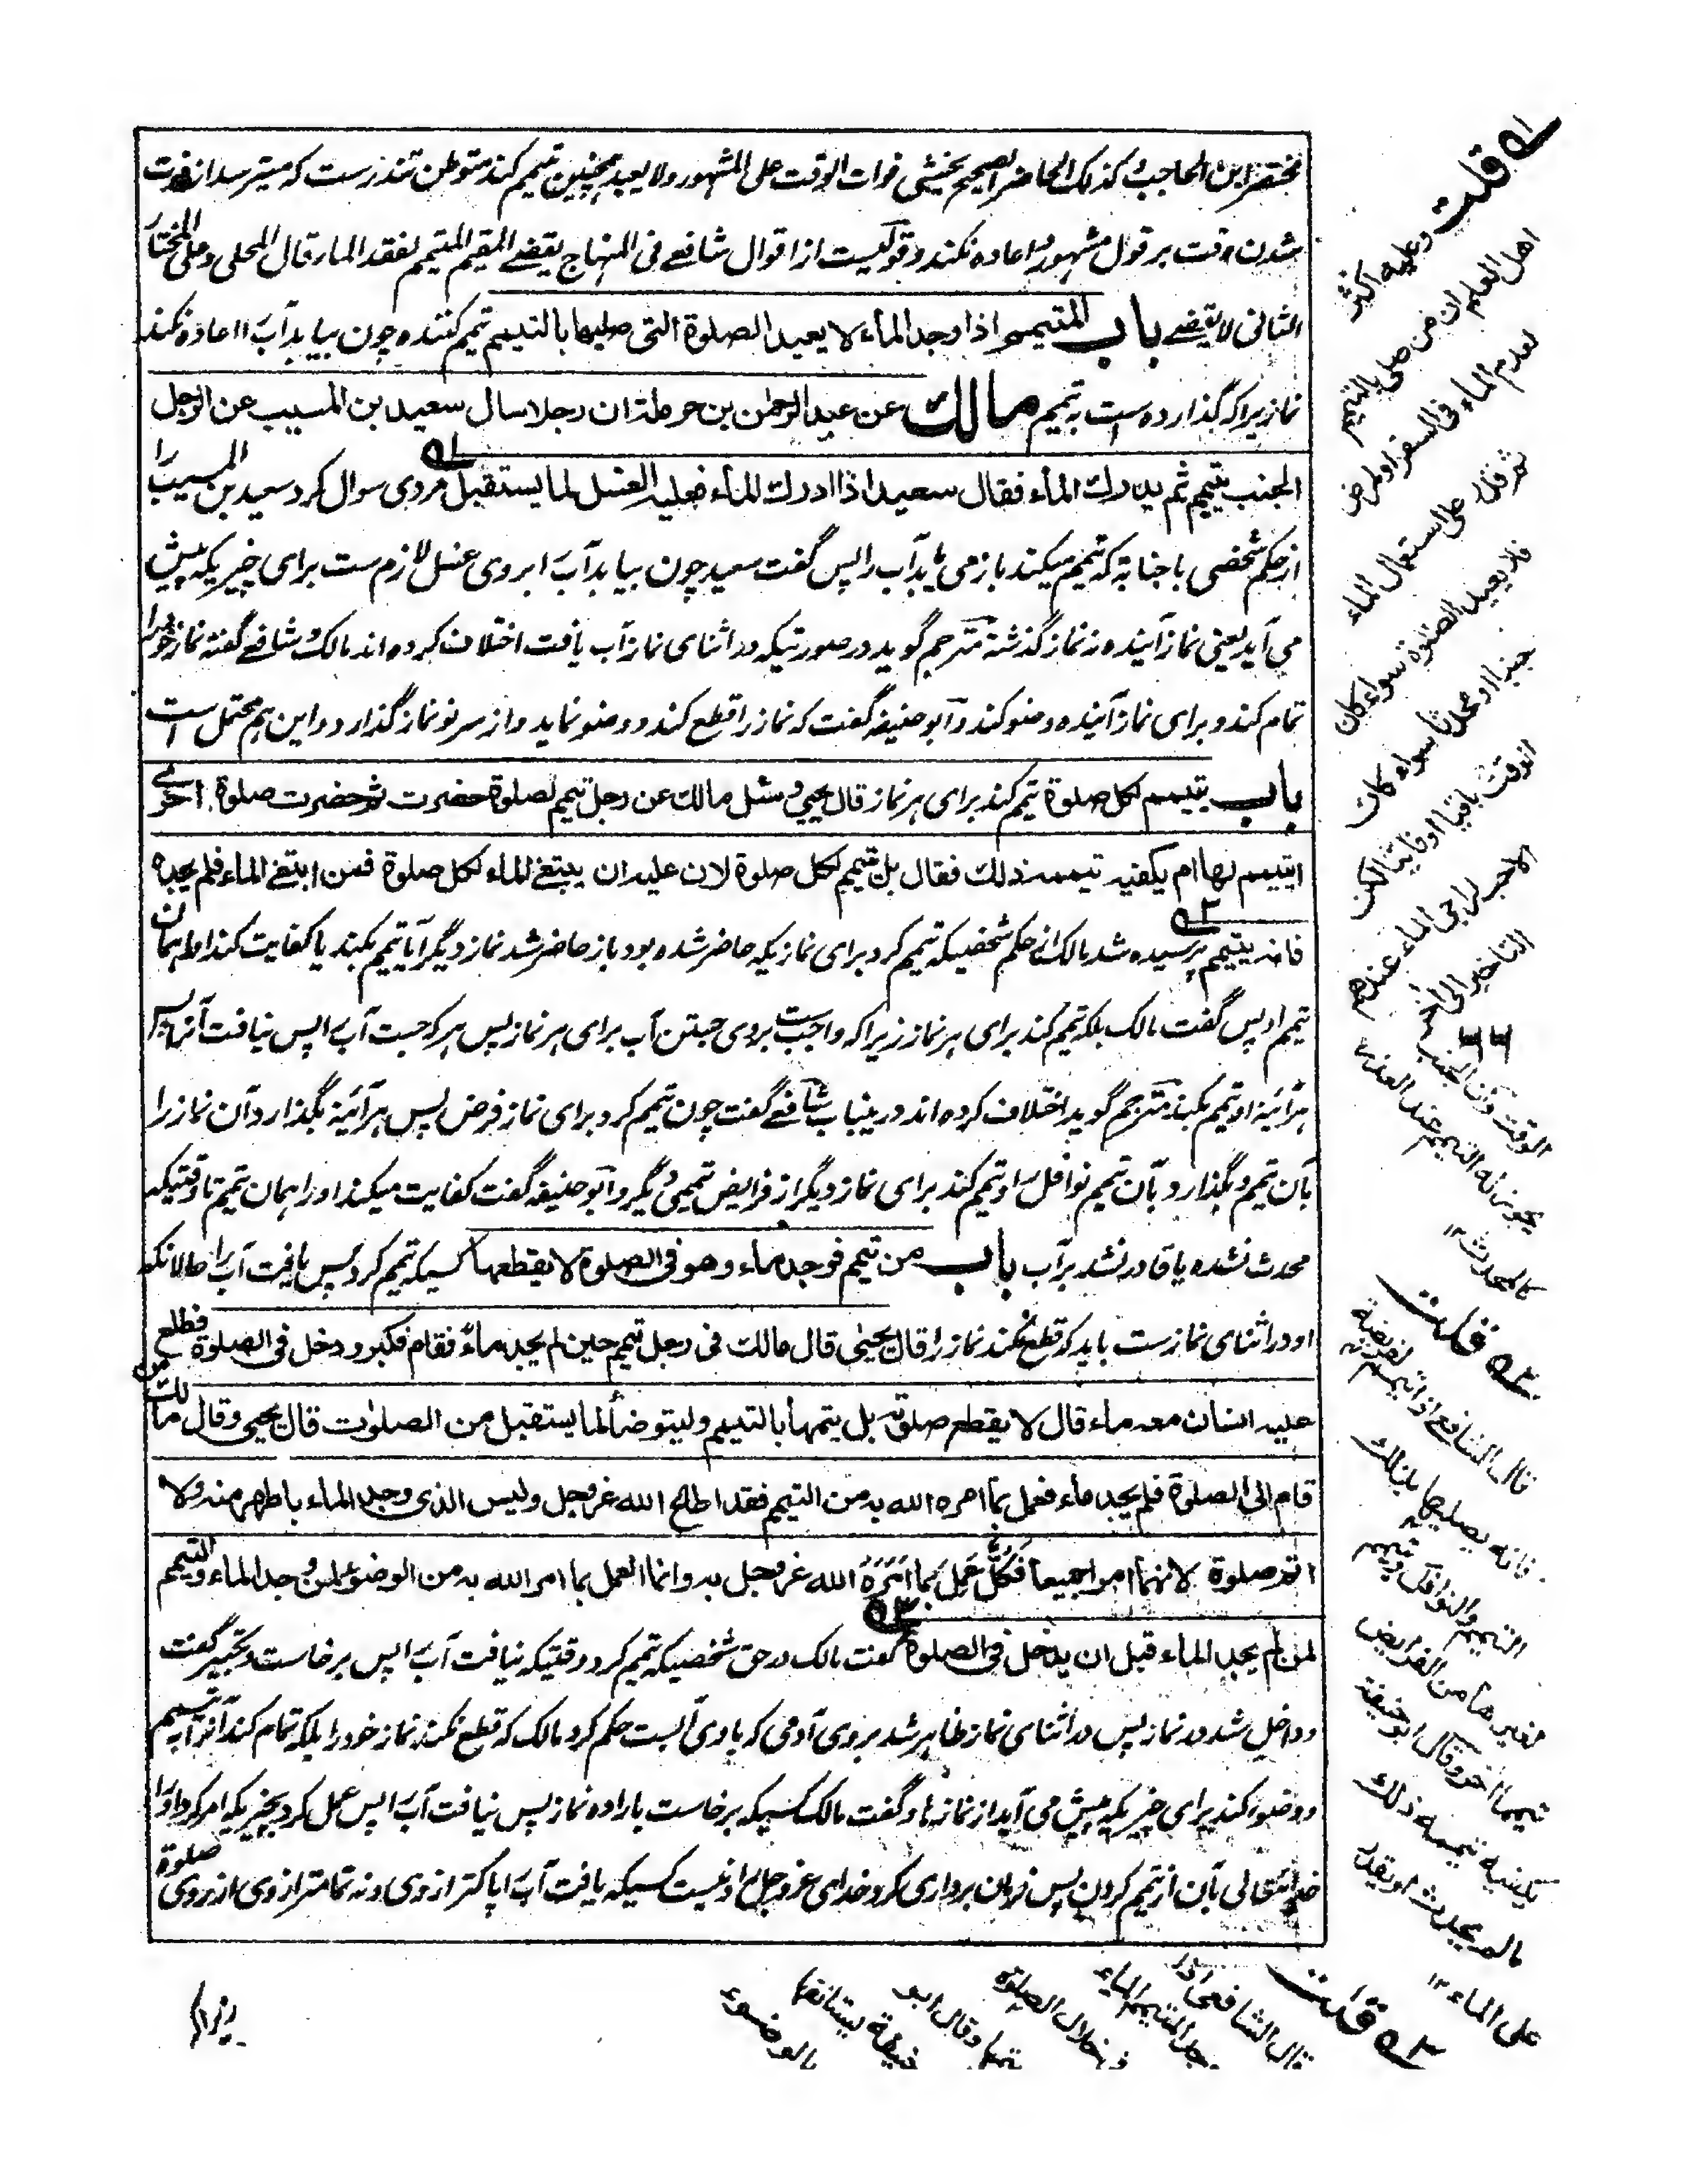 مختصر ابن الحاجب کذلک الحاضر الصحیح یخشی فوات الوقت علی المشهور ولا یعید همچنین تیمم کند متوطن تندرست که میترسد از فوت
شدن وقت بر قول مشهور و اعاده نکند و قولیست از اقوال شافعے فی المنهاج یقضے المقیم المتیمم لفقد الماء قال المحلی وعلی المختار
الثانی لا یقضے باب المتیمم اذا وجد الماء لا یعید الصلوة التی صلیها بالتیمم تیمم کننده چون بیابد آب را اعاده نکند
نمازیرا که گذارده است به تیمم مالك عن عبد الرحمن بن حرملة ان رجلا سال سعید بن المسیب عن الرجل
الجنب یتیمم ثم یدرك الماء فقال سعید اذا ادرك الماء فعلیه الغسل لما یستقبل مردی سوال کرد سعید بن المسیب را
از حکم شخصی با جنابة که تیمم میکند باز می یابد آب را پس گفت سعید چون بیابد آب را بر وی غسل لازم ست برای چیزیکه پیش
می آید یعنی نماز آینده نه نماز گذشته مترجم گوید در صورتیکه در اثنای نماز آب یافت اختلاف کرده اند مالک و شافعے گفته نماز خود را
تمام کند و برای نماز آینده وضو کند و ابو حنیفه گفت که نماز را قطع کند و وضو نماید و از سر نو نماز گذارد و این هم محتمل است
باب یتیمم لکل صلوة تیمم کند برای هر نماز قال یحیی وسئل مالك عن رجل تیمم لصلوة حضرت ثم حضرت صلوة اخرے
ایتیمم لها ام یکفیه تیممه ذلك فقال بل یتیمم لکل صلوة لان علیه ان یبتغی الماء لکل صلوة فمن ابتغی الماء فلم یجده
فانه یتیمم پرسیده شد مالک از حکم شخصیکه تیمم کرد برای نمازیکه حاضر شده بود باز حاضر شد نماز دیگر آیا تیمم بکند یا کفایت کند او را همان
تیمم او پس گفت مالک بلکه تیمم کند برای هر نماز زیرا که واجب ست بر وی جستن آب برای هر نماز پس هر که جست آب را پس نیافت آنرا پس
هر آئینه او تیمم بکند مترجم گوید اختلاف کرده اند درینباب شافعے گفت چون تیمم کرد برای نماز فرض پس هر آئینه بگذارد آن نماز را
بآن تیمم و بگذارد بآن تیمم نوافل را و تیمم کند برای نماز دیگر از فرایض تیممی دیگر و ابو حنیفه گفت کفایت میکند او را همان تیمم تا وقتیکه
محدث نشده یا قادر نشد بر آب باب من تیمم فوجد ماء وهو فی الصلوة لا یقطعها کسیکه تیمم کرد پس یافت آب را حالانکه
او در اثنای نماز ست باید که قطع نکند نماز را قال یحیی قال مالك فی رجل تیمم حین لم یجد ماء فقام فکبر ودخل فی الصلوة فطلع
علیه انسان معه ماء قال لا یقطع صلوته بل یتمها بالتیمم ولیتوضأ لما یستقبل من الصلوات قال یحیی وقال مالك من
قام الی الصلوة فلم یجد ماء فعمل بما امره الله به من التیمم فقد اطاع الله عزوجل ولیس الذی وجد الماء باطهر منه ولا
اتم صلوة لانهما امرا جمیعا فکل عمل بما امره الله عزوجل به وانما العمل بما امر الله به من الوضوء لمن وجد الماء والتیمم
لمن لم یجد الماء قبل ان یدخل فی الصلوة گفت مالک در حق شخصیکه تیمم کرد وقتیکه نیافت آب را پس برخاست و تکبیر گفت
و داخل شد در نماز پس در اثنای نماز ظاهر شد بر وی آدمی که با وی آبست حکم کرد مالک که قطع نکند نماز خود را بلکه تمام کند آنرا به تیمم
و وضو کند برای چیزیکه پیش می آید از نمازها و گفت مالک کسیکه برخاست باراده نماز پس نیافت آب را پس عمل کرد بچیزیکه امر کرد او را
خدایتعالی بآن از تیمم کردن پس فرمان برداری کرد خدای عزوجل را و نیست کسیکه یافت آب را پاکتر از وی و نه تمامتر از وی از روی صلوة
۱ه قلت وعلیه اکثر
اهل العلم ان من صلی بالتیمم
لعدم الماء فی السفر او لمرض
ثم قدر علی استعمال الماء
فلا یعید الصلوة سواء کان
جنبا او محدثا سواء کان
الوقت باقیا او فائتا لکن
الاحب لراجی الماء عندهم
التاخیر الی آخر
الوقت وان الجنب
یجوز له التیمم عند العذر
کالمحدث ۱۲
۲ه قلت
قال الشافعی اذا تیمم لفریضة
فانه یصلیها بذلك
التیمم والنوافل ویتیمم
لغیرها من الفرایض
تیمما اخر وقال ابو حنیفة
یکفیه تیممه ذلك
مالم یحدث او یقدر
علی الماء ۱۲
۳ه قلت
قال الشافعی اذا
وجد المتیمم الماء
فی خلال الصلوة
یتمها وقال ابو
حنیفة یستانفها
بالوضوء